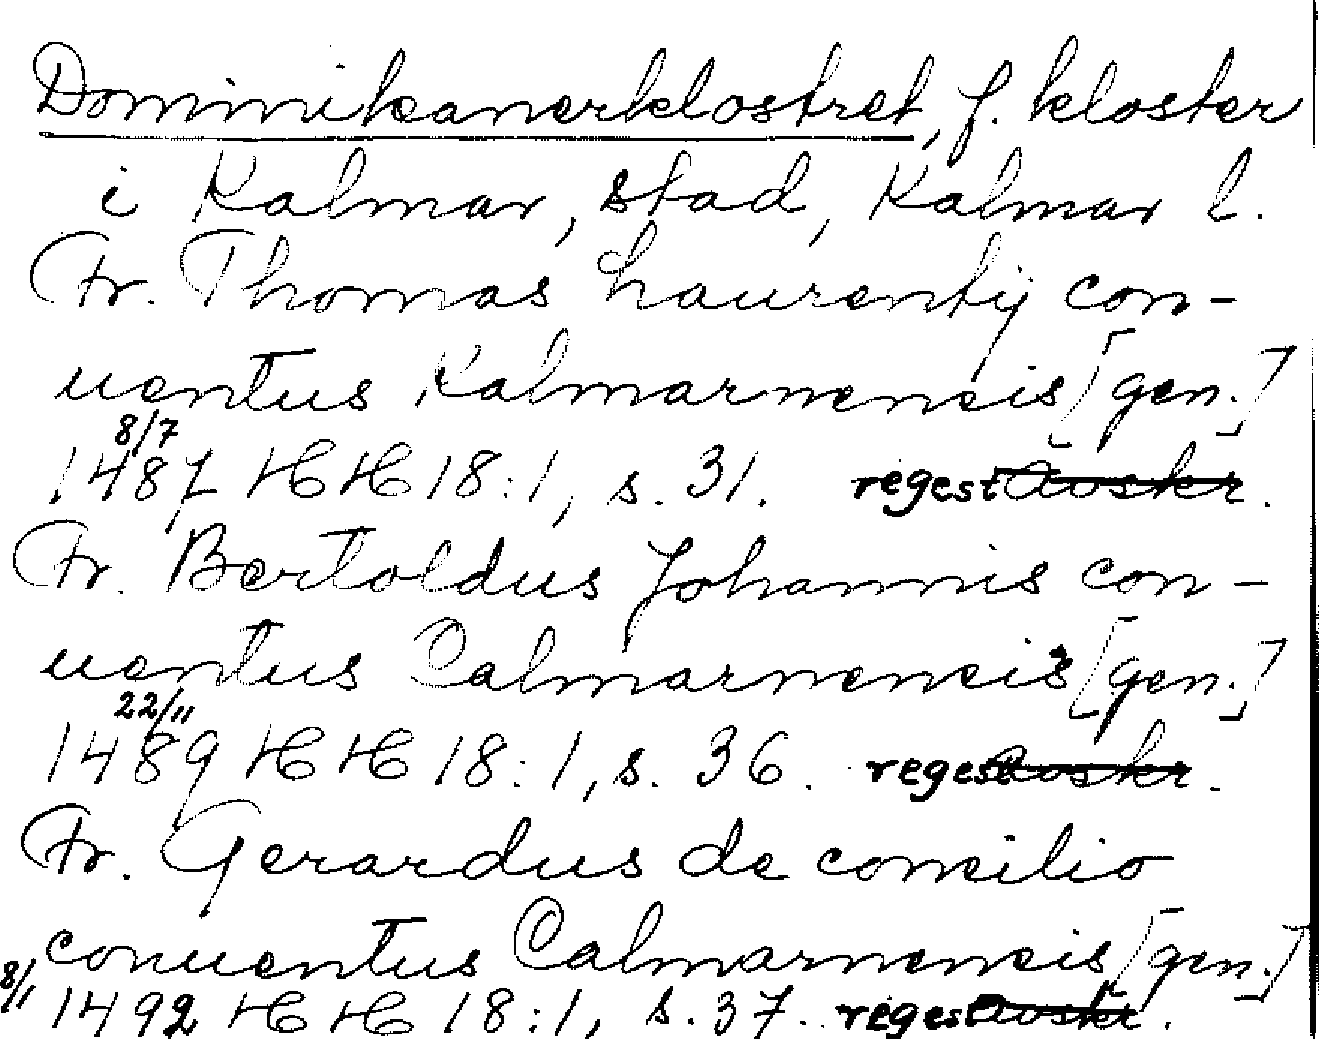 Dominikanerklostret, f. kloster
i Kalmar, stad, Kalmar l.
Fr. Thomas Laurentij con-
uentus Kalmarnensis [gen.]
8/7
1487 HH 18:1, s. 31. regest avskr.
Fr. Bertoldus Johannis con-
uentus Calmarnensis [gen.]
22/11
1489 HH 18:1, s. 36. regest avskr.
Fr. Gerardus de consilio
conuentus Calmarnensis [gen.]
8/11 1492 HH 18:1, s. 37. regest avskr.